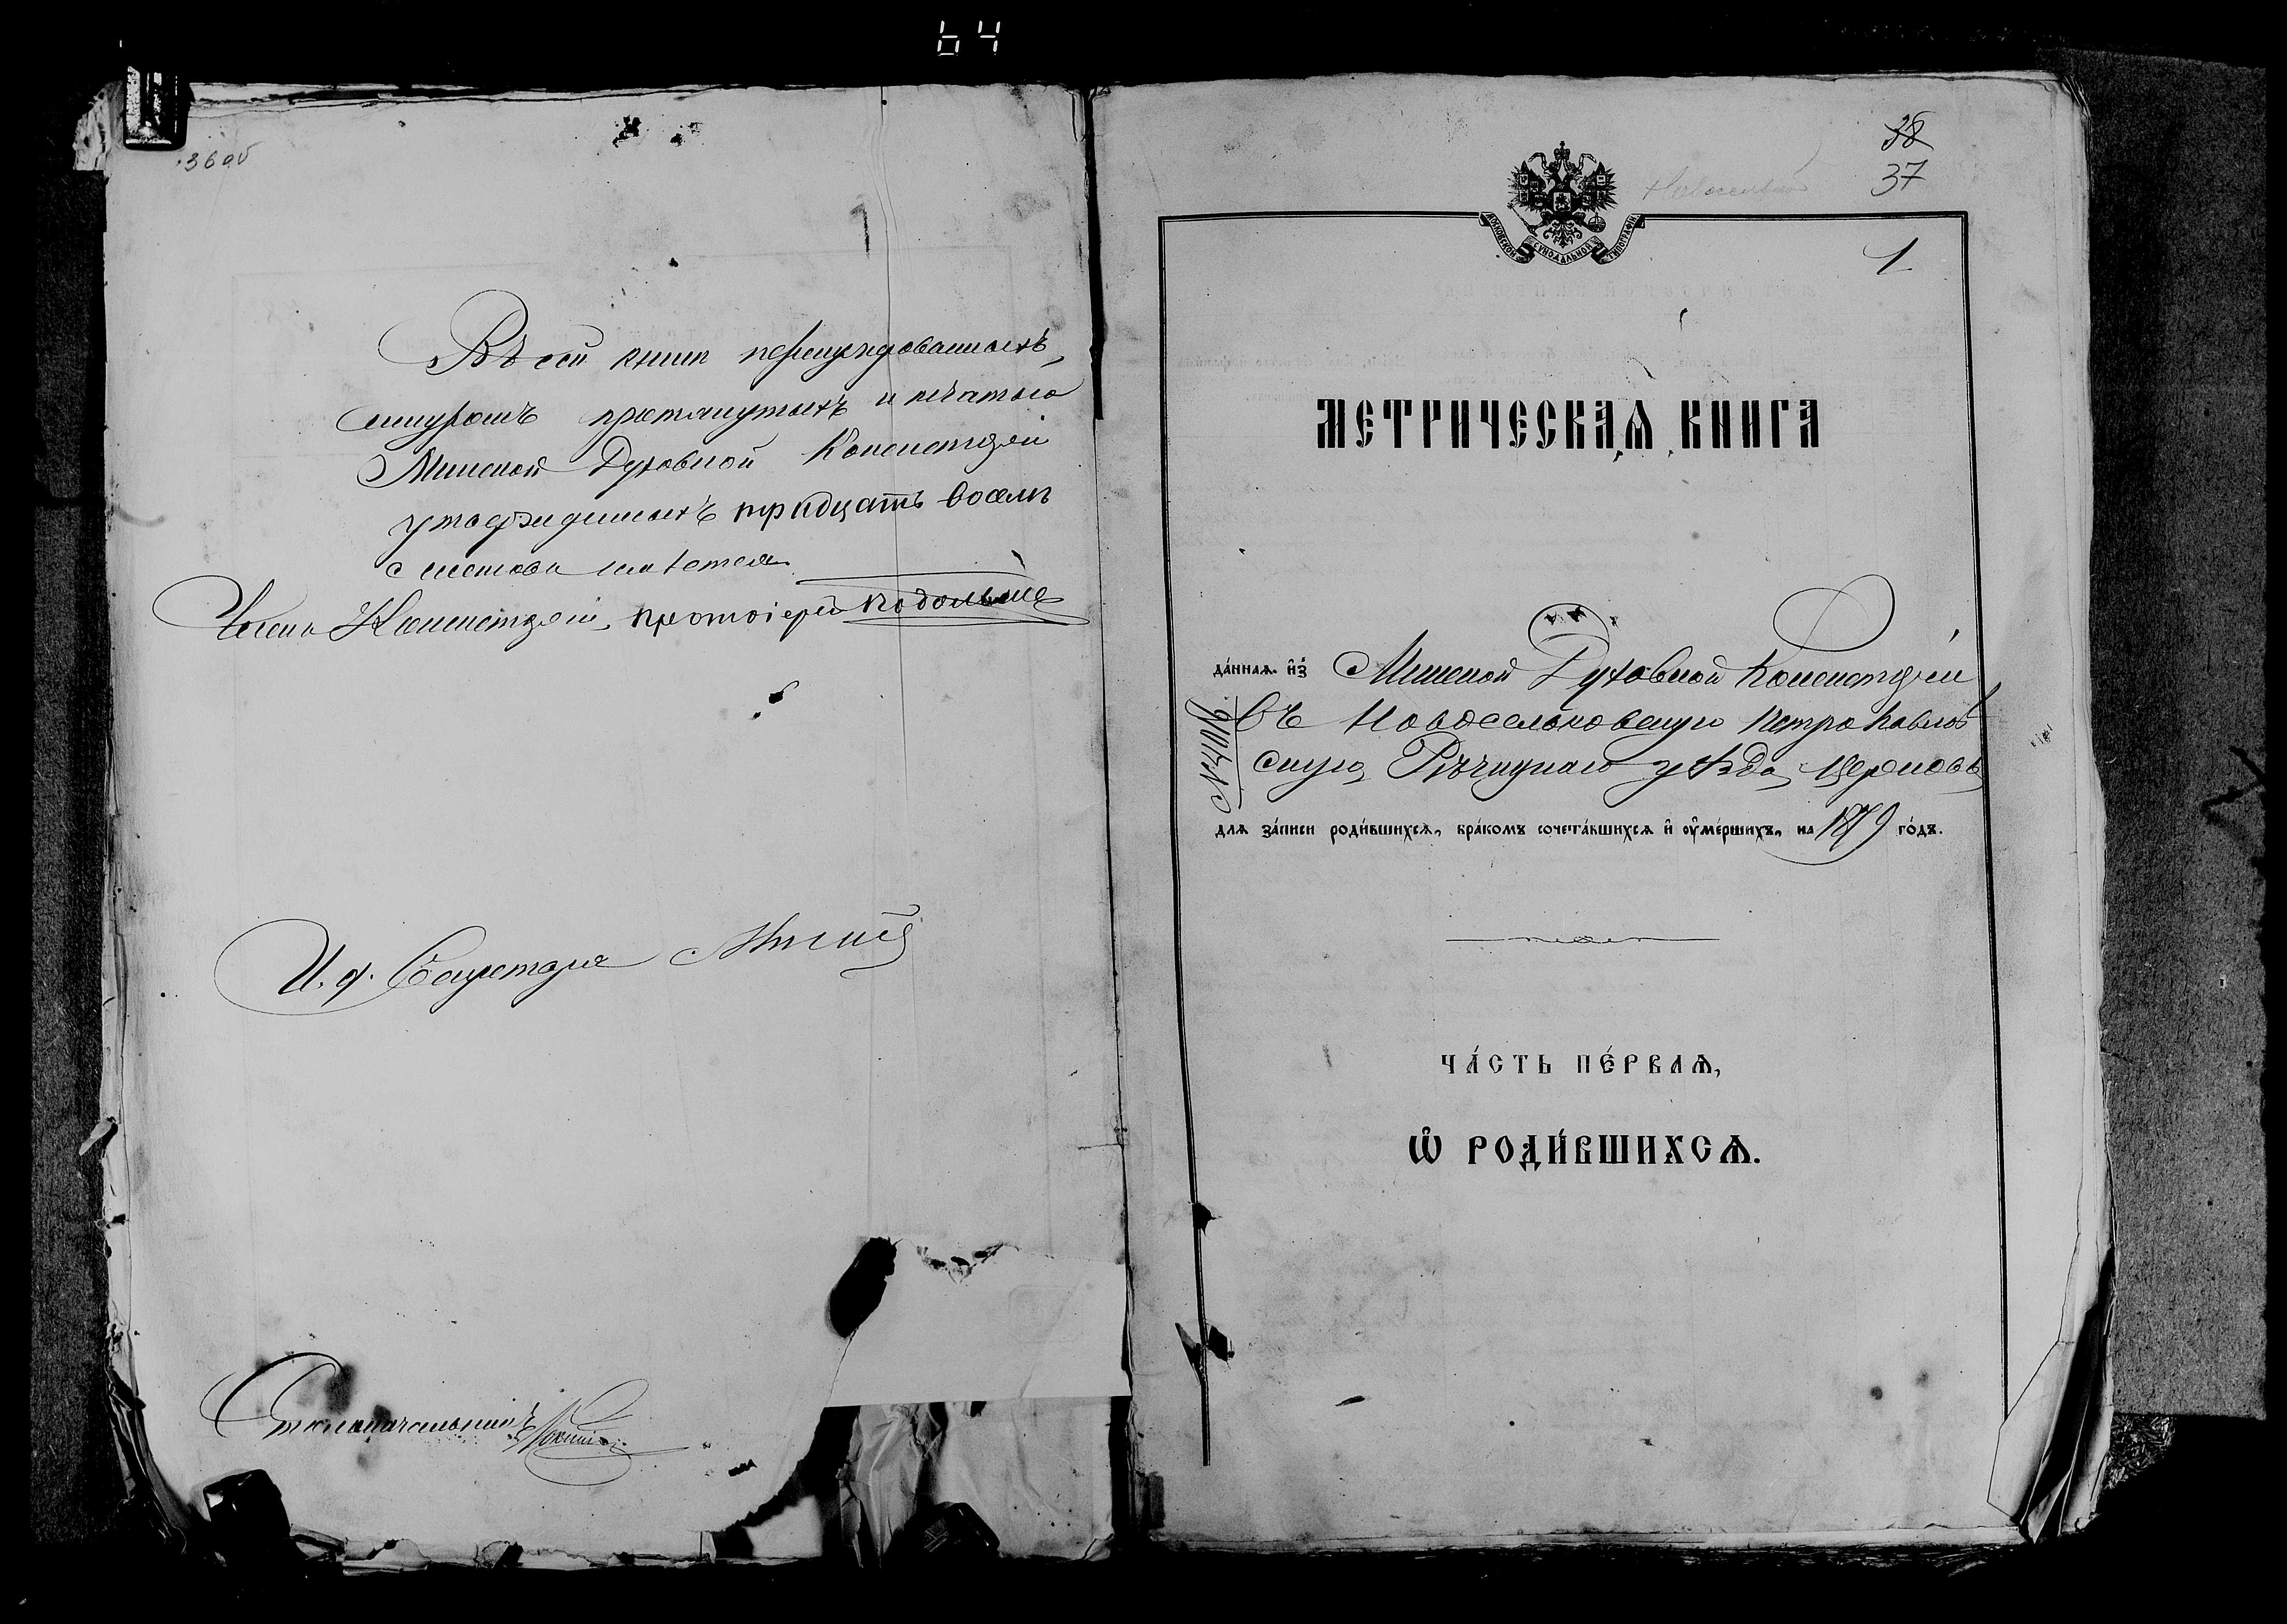 64
36 об
Въ сей книгѣ перенумерованныхъ,
шнуромъ протянутыхъ и печатью
Минской Духовной Консисторіи
утвержденныхъ тридцать восемь
листовъ имѣется.
Членъ Консисторіи, протоіерей
И. д. Секретаря
Столоначальникъ
38
37
МОСКОВСКОЙ СУНОДАЛЬНОЙ ТИПОГРАФІИ
1
МЕТРИЧЕСКАѦ КНИГА
да́ннаѧ и҆з̾ Минской Духовной Консисторіи
въ Новоселковскую Петро Павлов
скую, Рѣчицкаго уѣзда, церковь
длѧ за́писи роди́вшихсѧ, бра́комъ сочета́вшихсѧ и҆ ᲂу҆ме́ршихъ, на 1879 го́дъ.
ЧА́СТЬ ПЕ́РВАѦ,
Ѽ РОДИ́ВШИХСѦ.